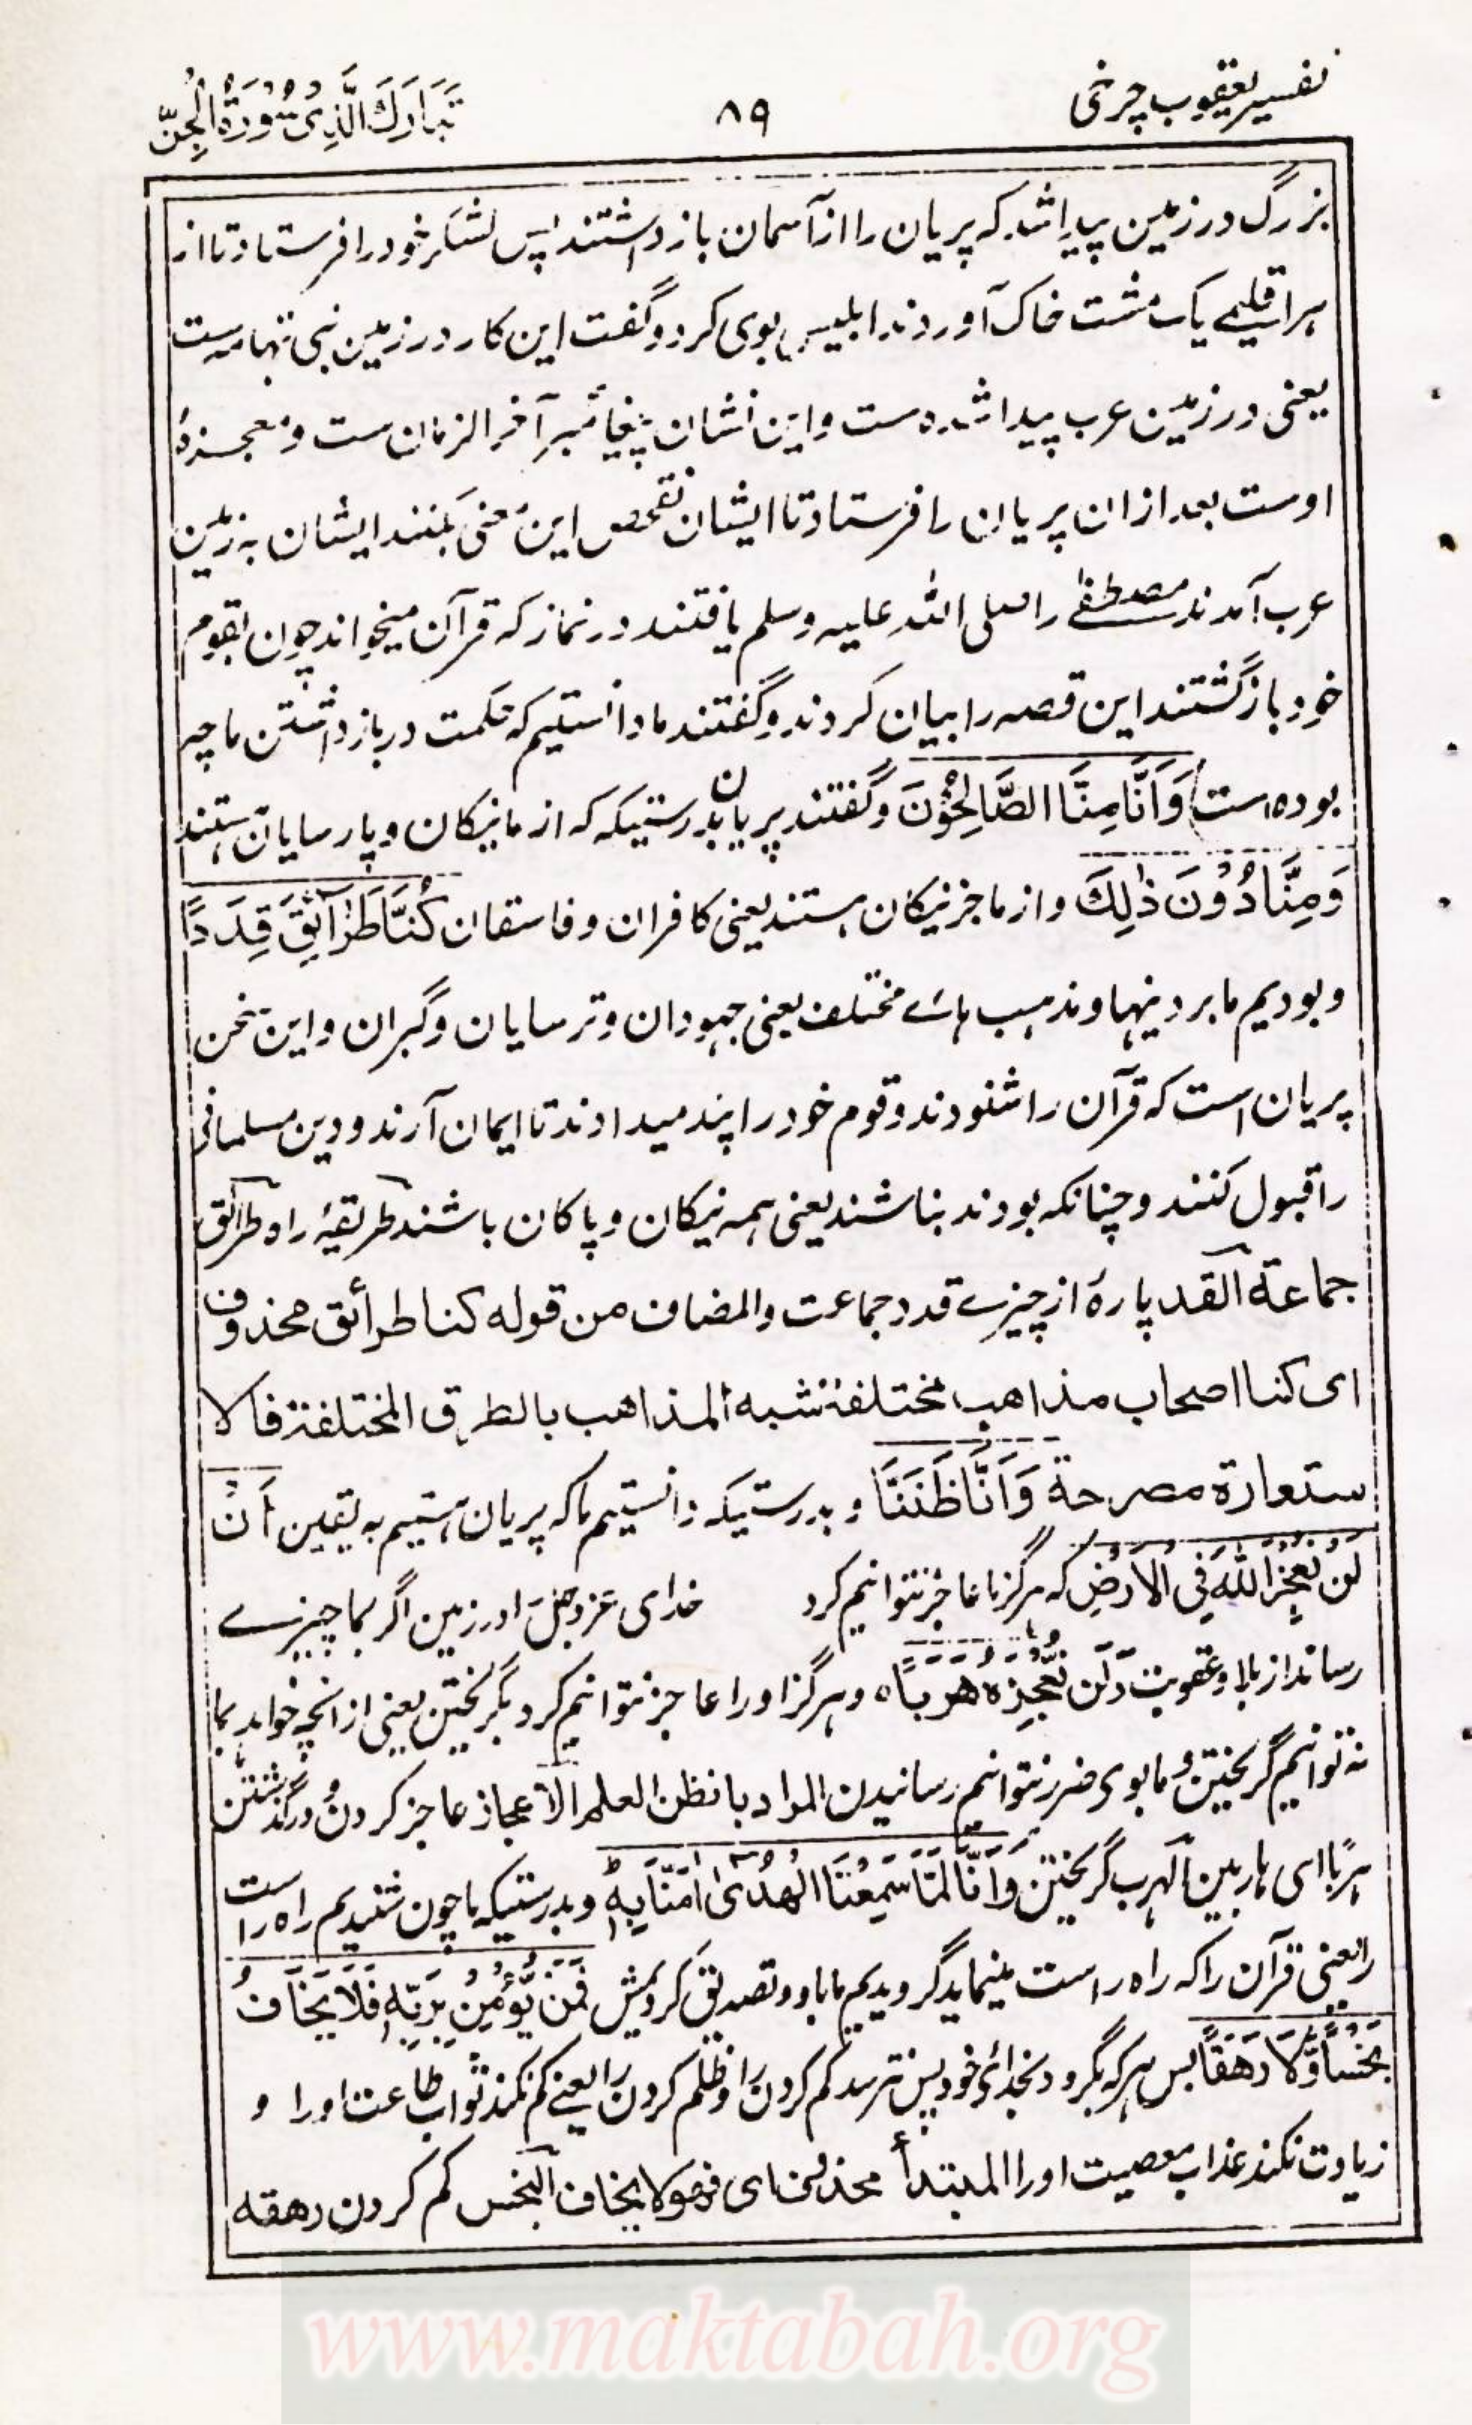 تفسیر یعقوب چرخی
۸۹
تَبَارَكَ الَّذِیْ سُوْرَةُ الْجِنّ
بزرگ در زمین پیدا شد که پریان را از آسمان باز داشتند پس لشکر خود را فرستاد تا از
هر اقلیمے یک مشت خاک آوردند ابلیس بوی کرد و گفت این کار در زمین بنی تهامه ست
یعنی در زمین عرب پیدا شده ست و این نشان پیغامبر آخر الزمان ست و معجزۂ
اوست بعد ازان پریان را فرستاد تا ایشان تفحص این معنی بکنند ایشان به زمین
عرب آمدند مصطفےٰ را صلی اللہ علیه وسلم یافتند در نماز که قرآن میخواند چون بقوم
خود باز گشتند این قصه را بیان کردند و گفتند ما دانستیم که حکمت در باز داشتن ما چه
بوده است وَاَنَّا مِنَّا الصَّالِحُوْنَ و گفتند پریان بدرستیکه که از ما نیکان و پارسایان هستند
وَمِنَّا دُوْنَ ذٰلِكَ و از ما جز نیکان هستند یعنی کافران و فاسقان كُنَّا طَرَآئِقَ قِدَدًا
و بودیم ما بر دینها و مذهب هائے مختلف یعنی جهودان و ترسایان و گبران و این سخن
پریان است که قرآن را شنودند و قوم خود را پند میدادند تا ایمان آرند و دین مسلمانی
را قبول کنند و چنانکه بودند بناشند یعنی همه نیکان و پاکان باشند طریقۂ راه طرائق
جماعة القد پارۂ از چیزے قدد جماعت والمضاف من قوله کنا طرائق محذوف
ای کنا اصحاب مذاهب مختلفة شبه المذاهب بالطرق المختلفة فالا
ستعارة مصرحة وَاَنَّا ظَنَنَّا و بدرستیکه دانستیم ما که پریان هستیم به یقین اَنْ
لَنْ نُعْجِزَ اللّٰهَ فِی الْاَرْضِ که هرگز ما عاجز نتوانیم کرد خدای عزوجل را در زمین اگر بما چیزے
رساند از بلا و عقوبت وَلَنْ نُعْجِزَهٗ هَرَبًا ه و هرگز او را عاجز نتوانیم کرد بگریختن یعنی از انچه خواهد بما
نه توانیم گریختن و ما بوی ضرر نتوانیم رسانیدن المراد بالظن العلم الاعجاز عاجز کردن و درگذشتن
هربا ای هاربین الهرب گریختن وَاَنَّا لَمَّا سَمِعْنَا الْهُدٰی اٰمَنَّا بِهٖ و بدرستیکه ما چون شنیدیم راه راست
را یعنی قرآن را که راه راست مینماید گرویدیم ما باو و تصدیق کردیمش فَمَنْ یُّؤْمِنْ بِرَبِّهٖ فَلَا یَخَافُ
بَخْسًا وَّلَا رَهَقًا پس هر که بگرود بخدائ خود پس نترسد کم کردن را و ظلم کردن را یعنے کم نکند ثواب طاعت او را و
زیادت نکند عذاب معصیت او را المبتدأ محذوف ای فهو لا یخاف البخس کم کردن رهقه
www.maktabah.org